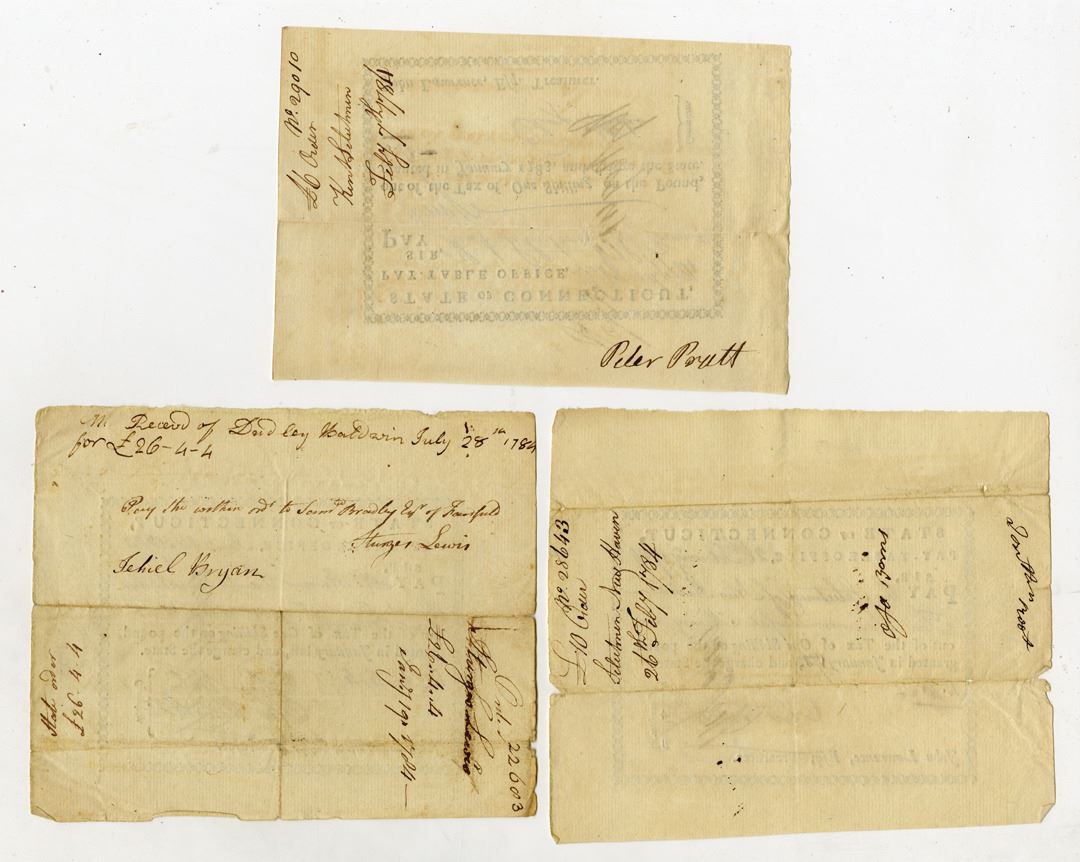 No. 29010
£6 Order
Kent Selectmen
Feby 1784
John Lawrence, Esq; Treasurer.
granted in January 1783, and charge the State.
out of the Tax of One Shilling on the Pound,
PAY
SIR,
PAY-TABLE OFFICE,
STATE OF CONNECTICUT,
Peter Pratt
Receivd of Dudley Baldwin July 28th 1784
for £26-4-4
Pay the within ordr to Saml Bradley Esqr of Fairfield
Sturges Lewis
Jehiel Bryan
State order
£26-4-4
Ord. 22603
Sturges Lewis
Jany 19th 1784
No. 28643
£10 Order
Selectmen New Haven
26th Feby 1784
STATE OF CONNECTICUT,
PAY-TABLE OFFICE,
SIR,
PAY
out of the Tax of One Shilling on the Pound,
granted in January
John Lawrence, Esq; Treasurer